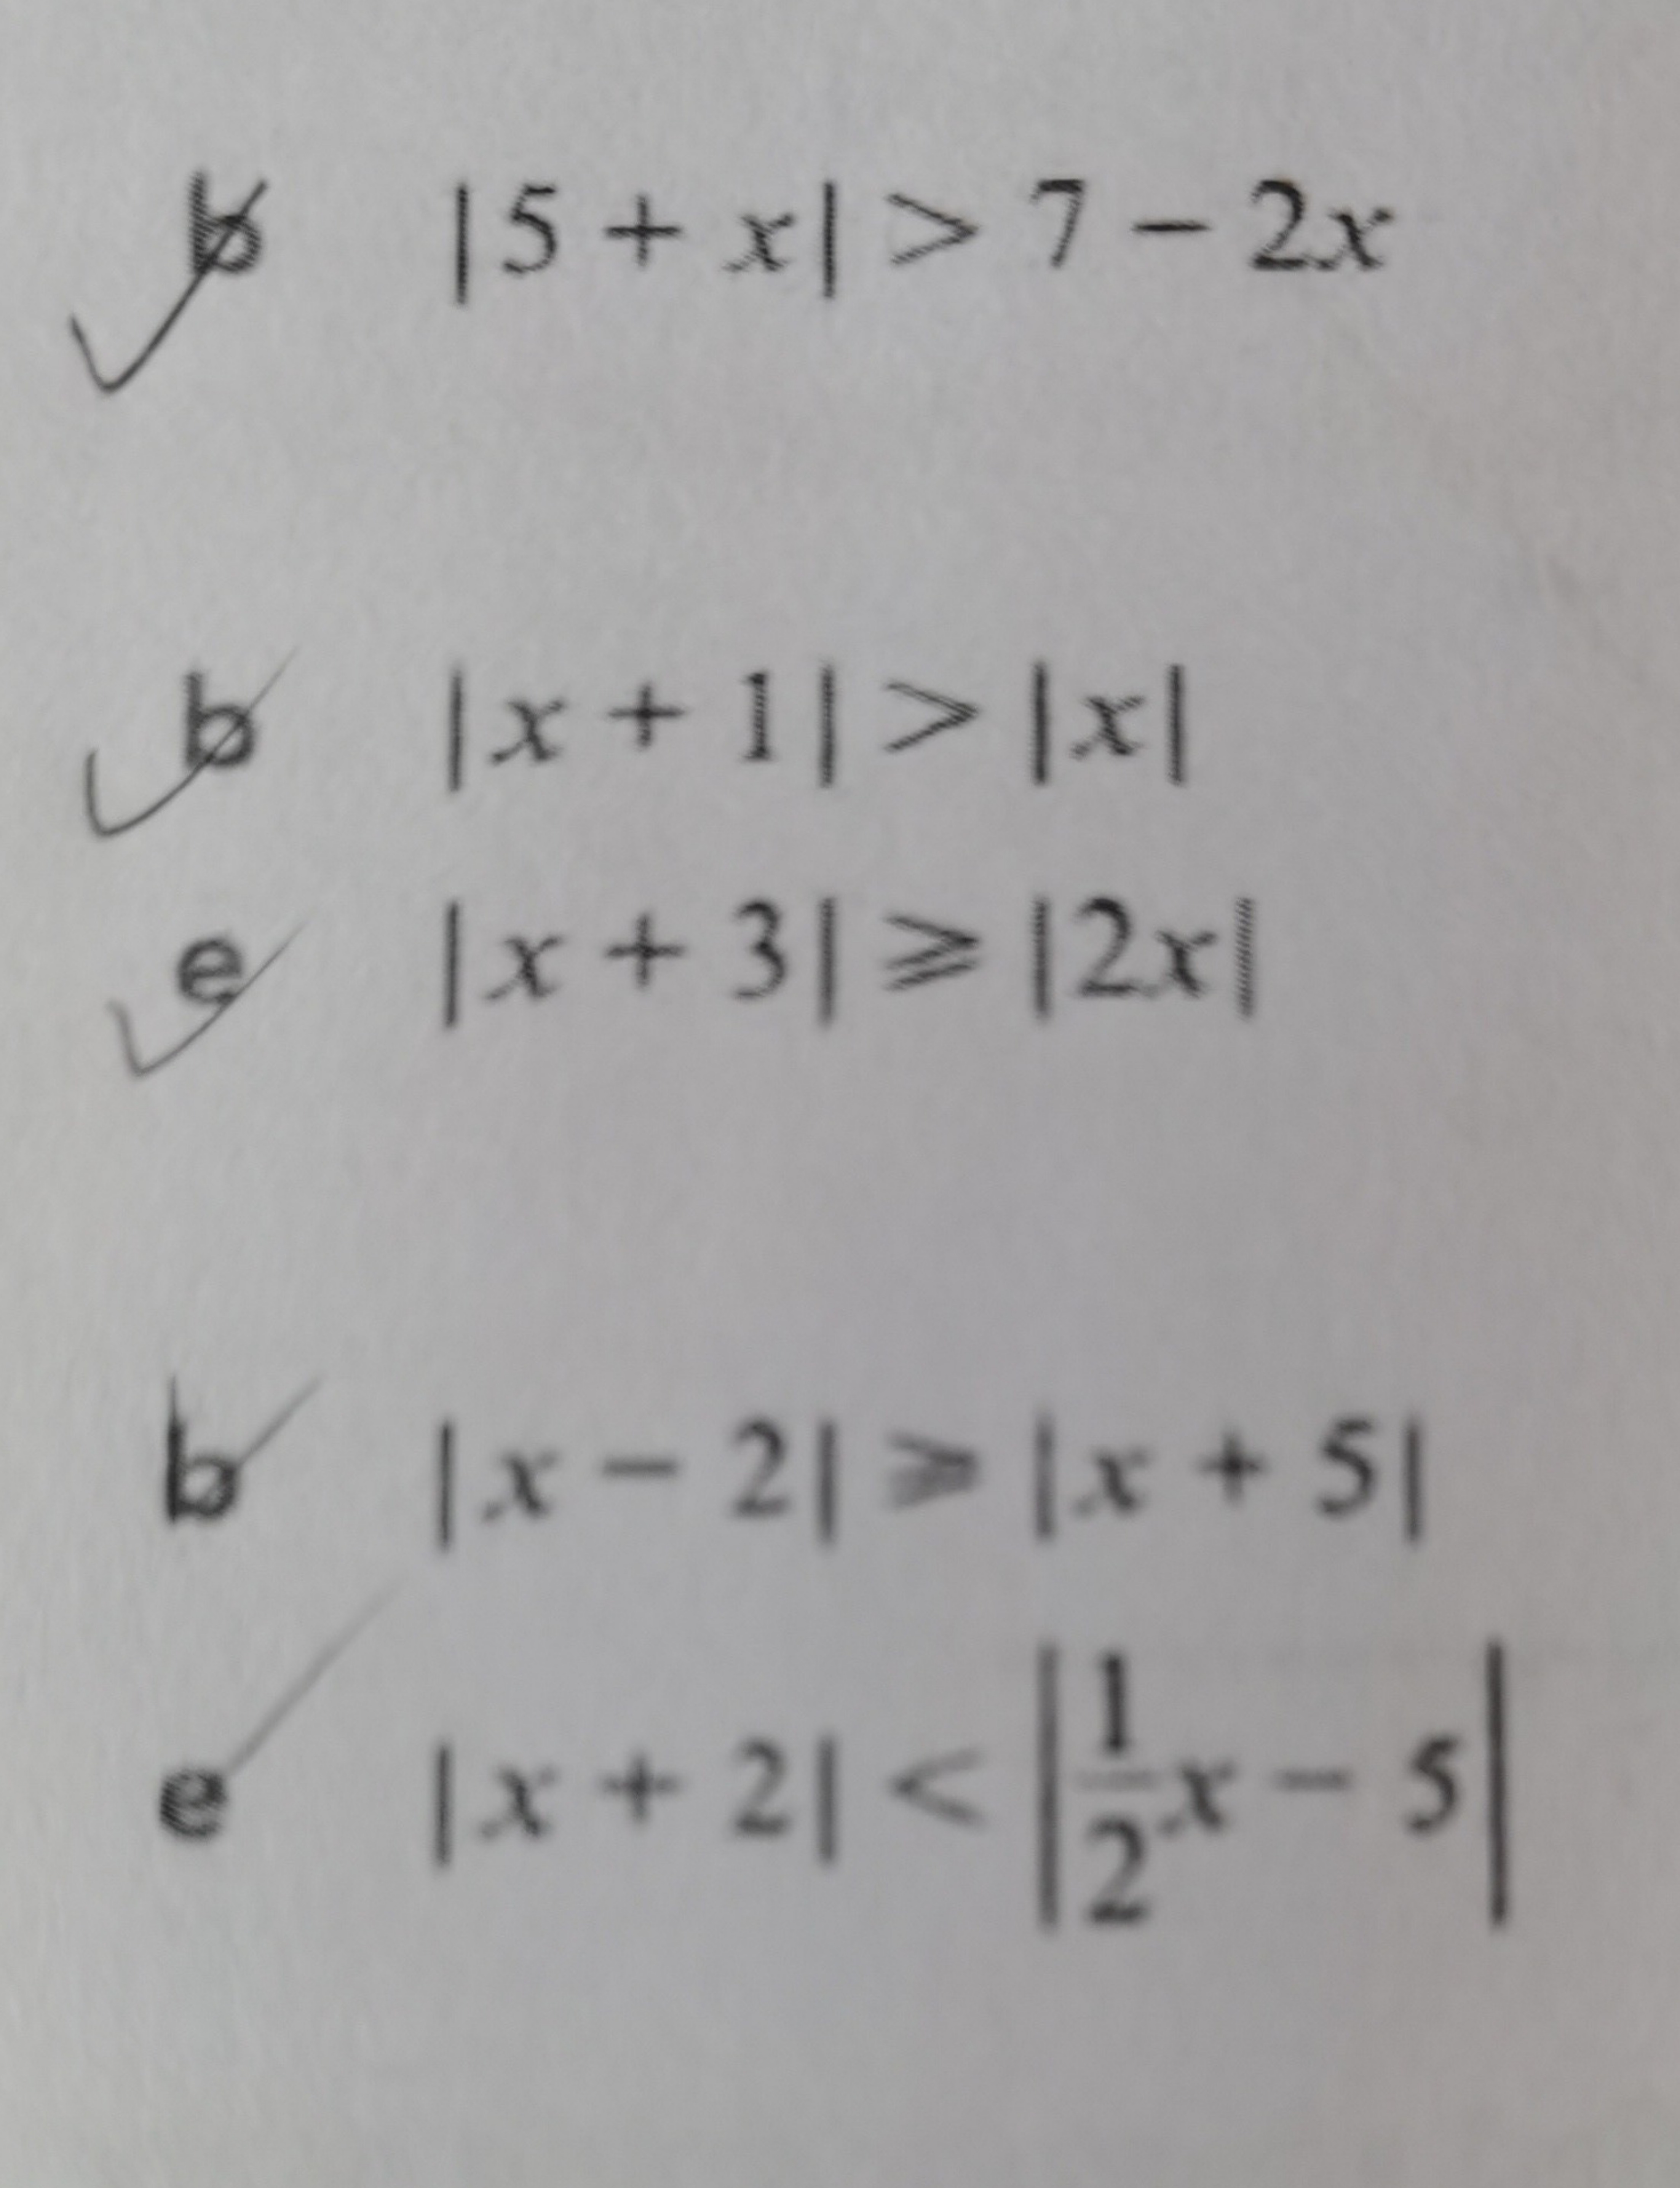 b |5 + x| > 7 − 2x
b |x + 1| > |x|
e |x + 3| ⩾ |2x|
b |x − 2| ⩾ |x + 5|
e |x + 2| < |1/2 x − 5|